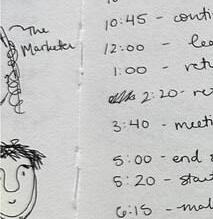 The
Marketer
10:45 - conti
12:00 - lea
1:00 - retu
2:20 - re
3:40 - meeti
5:00 - end
5:20 - star
6:15 - mal